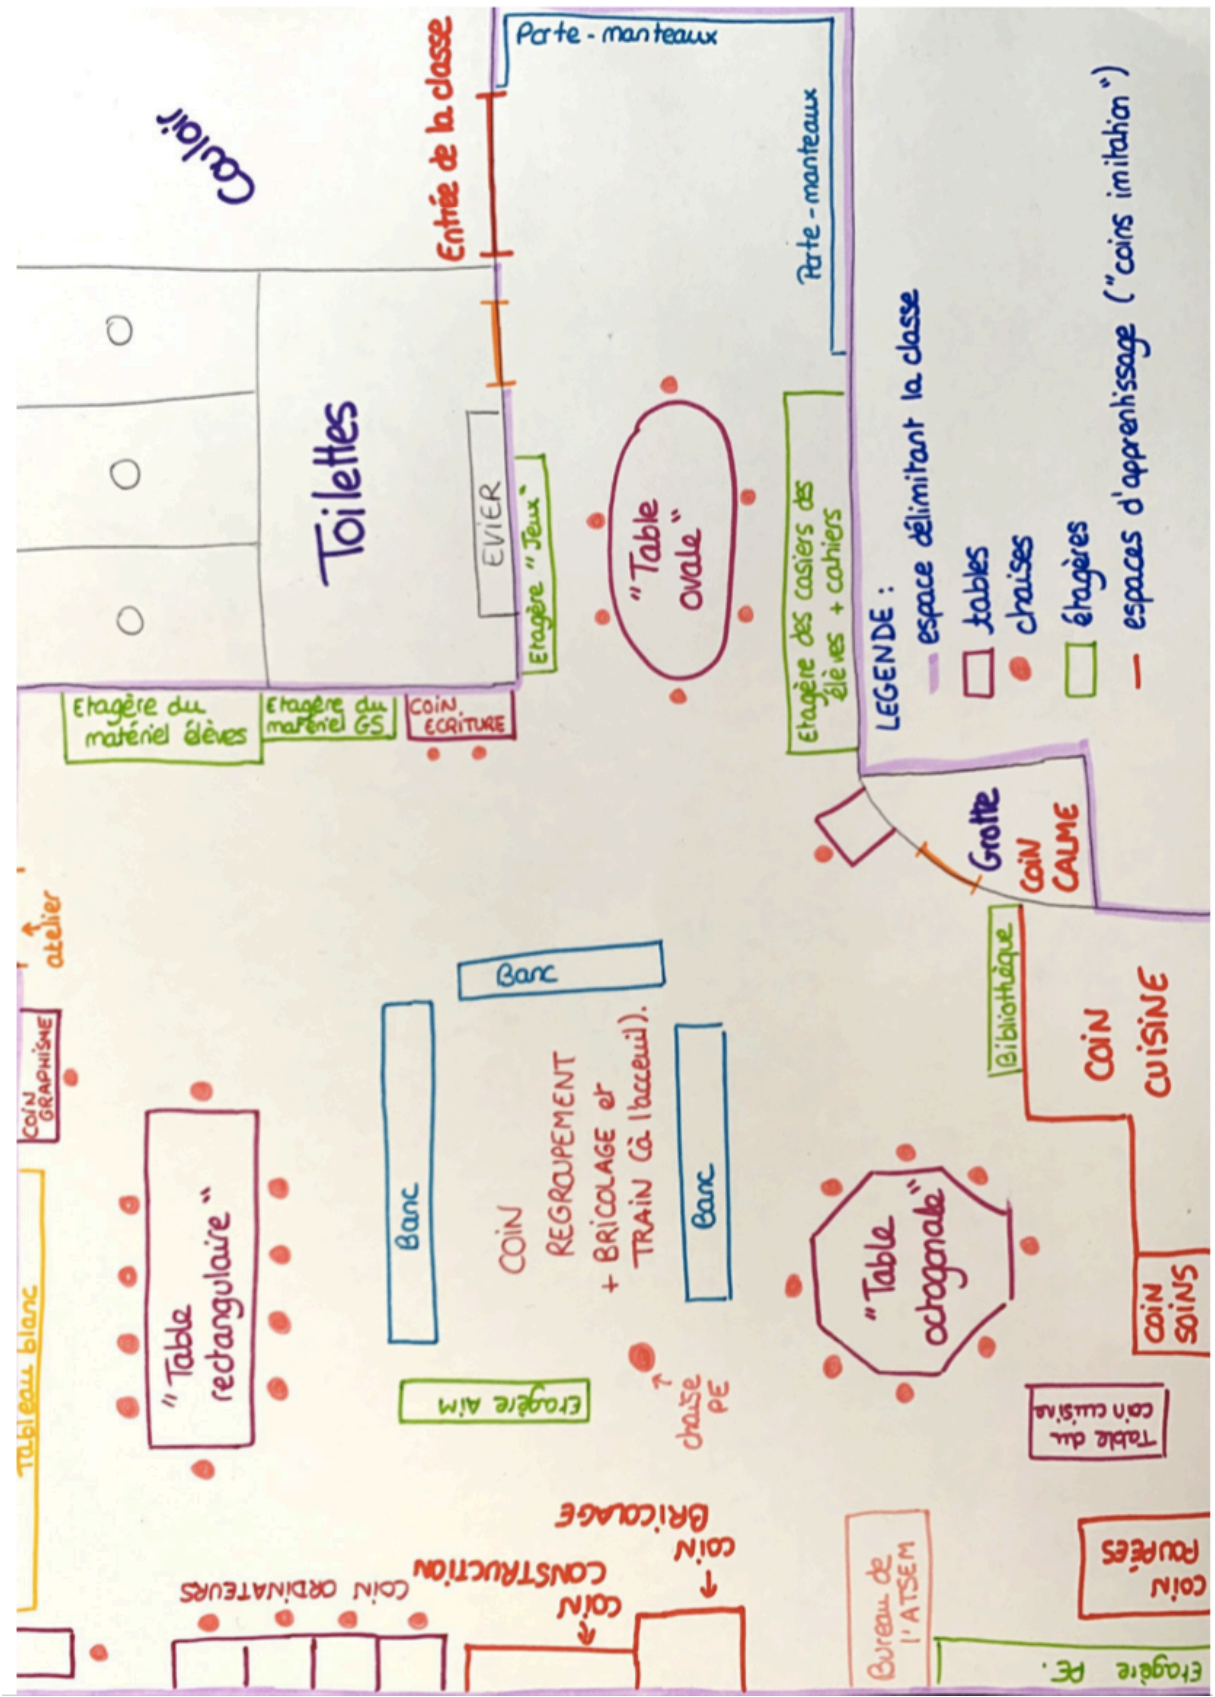 Couloir
Entrée de la classe
Porte-manteaux
Porte-manteaux
Toilettes
EVIER
Etagère "Jeux"
"Table
ovale"
Etagère des casiers des
élèves + cahiers
LEGENDE :
espace délimitant la classe
tables
chaises
étagères
espaces d'apprentissage ("coins imitation")
Etagère du
matériel élèves
Etagère du
matériel GS
COIN
ECRITURE
Grotte
COIN
CALME
atelier
COIN
GRAPHISME
Banc
Banc
Banc
COIN
REGROUPEMENT
+ BRICOLAGE et
TRAIN (à l'acceuil).
Bibliothèque
COIN
CUISINE
"Table
rectangulaire"
Tableau blanc
"Table
octogonale"
COIN
SOINS
Etagère AIM
chaise
PE
Table du
coin cuisine
COIN ORDINATEURS
COIN
CONSTRUCTION
COIN
BRICOLAGE
Bureau de
l'ATSEM
COIN
POUPÉES
Etagère PE.